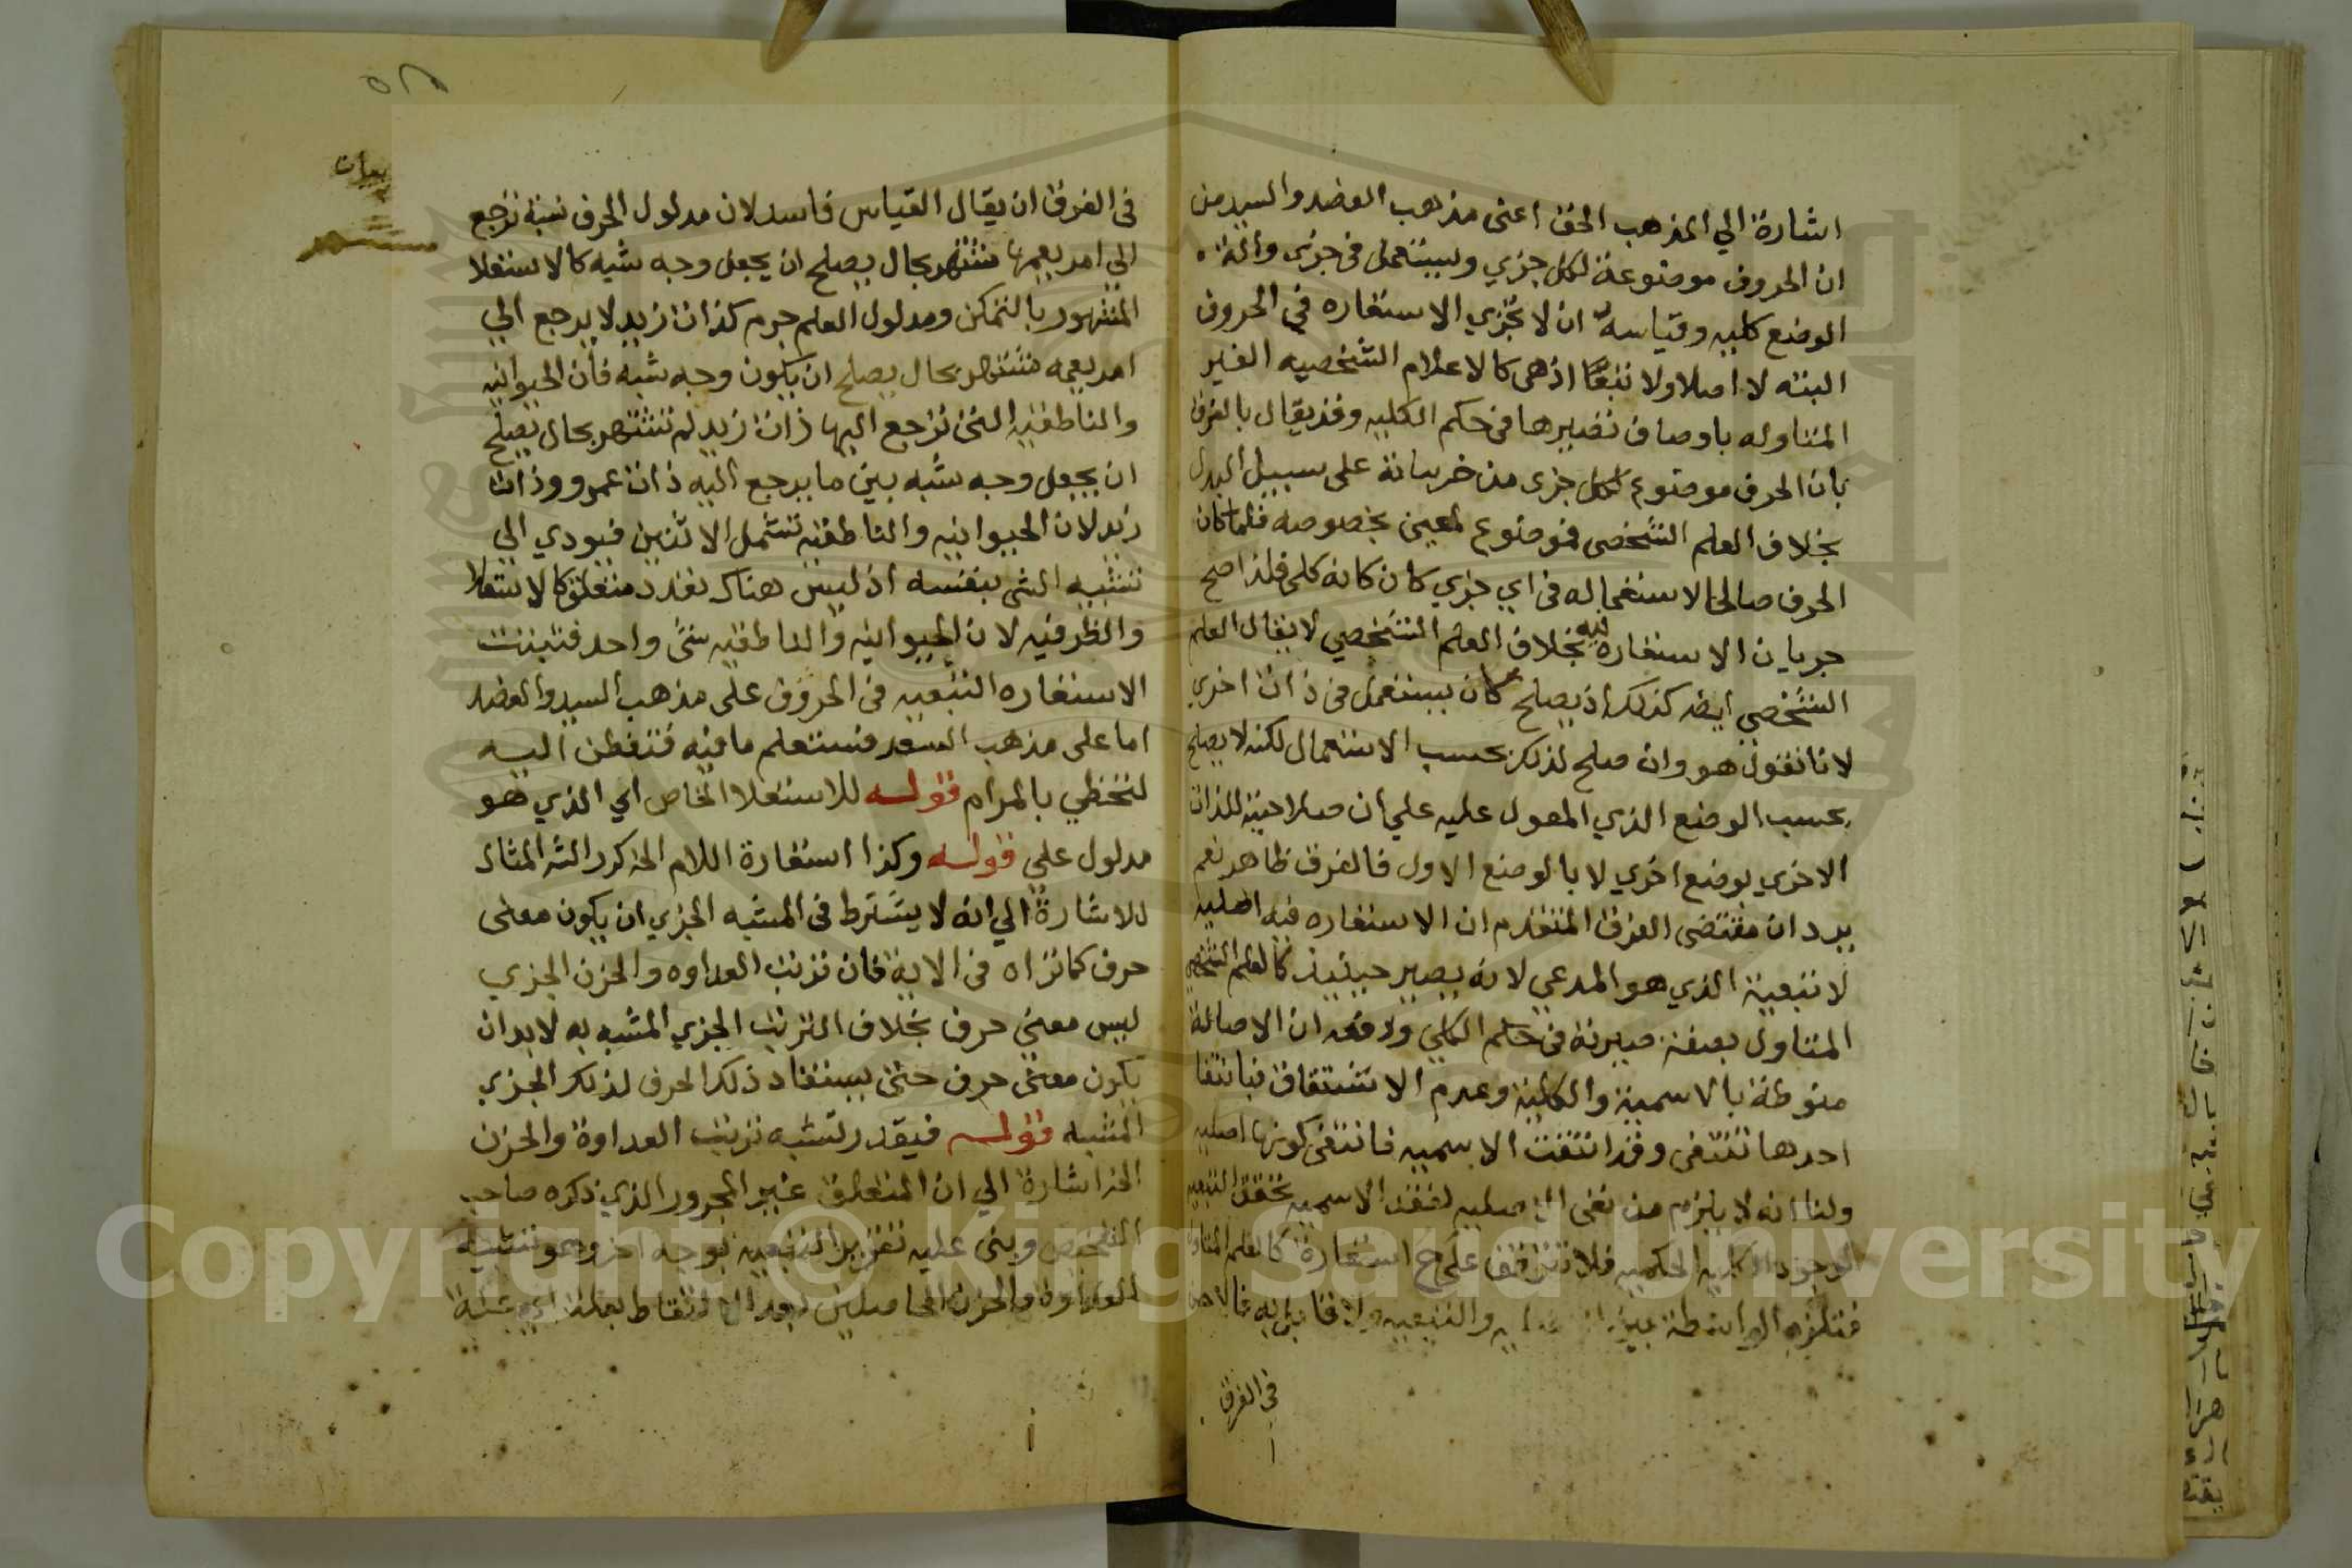 اشارة الي المذهب الحق اعنى مذهب العضد والسيد من
ان الحروف موضوعة لكل جزي ويستعمل في جزى والة
الوضع كليه وقياسه ان لا تجري الاستعاره في الحروف
البته لا اصلا ولا تبعا اذ هي كالاعلام الشخصيه الغير
المتناوله باوصاف تصيرها في حكم الكليه وقد يقال بالفرق
بان الحرف موضوع لكل جزى من جزئياته على سبيل البدل
بخلاف العلم الشخصى فموضوع لمعين بخصوصه فلما كان
الحرف صالحا لاستعماله في اي جزي كان كانه كلى فلذا صح
جريان الاستعارة فيه بخلاف العلم الشخصي لا يقال العلم
الشخصي ايضا كذلك اذ يصلح كان يستعمل في ذات اخرى
لانا نقول هو وان صلح لذلك بحسب الاستعمال لكنه لا يصلح
بحسب الوضع الذي المعول عليه علي ان صلاحيته للذات
الاخري بوضع اخري لا بالوضع الاول فالفرق ظاهر نعم
يرد ان مقتضى الفرق المتقدم ان الاستعاره فيه اصليه
لا تبعية الذي هو المدعي لانه يصير حينيذ كالعلم الشخصي
المتناول بصفة صيرته في حكم الكلي ودفعه ان الاصالة
منوطة بالاسمية والكلية وعدم الاشتقاق فبانتفا
احدها تنتفى وقد انتفت الاسميه فانتفى كونها اصليه
ولنا انه لا يلزم من نفى الاصليه لفقد الاسميه تحقق التبعيه
لوجود الكليه الحكميه فلا تتوقف علي استعارة كالعلم
فتلزم الواسطة بين والتبعيه ولا قايل به فالاحسن
في الفرق
في الفرق ان يقال القياس فاسد لان مدلول الحرف نسبة ترجع
الي امر يعمها مشتهر بحال يصلح ان يجعل وجه شبه كالاستعلا
المشهور بالتمكن ومدلول العلم جرم كذات زيد لا يرجع الي
امر يعمه مشتهر بحال يصلح ان يكون وجه شبه فان الحيوانيه
والناطقيه التى ترجع اليها ذات زيد لم تشتهر بحال يصلح
ان يجعل وجه شبه بين ما يرجع اليه ذات عمرو وذات
زيد لان الحيوانيه والناطقيه تشمل الاثنين فيودي الي
تشبيه الشى بنفسه اذ ليس هناك تعدد متعلق كالاستعلا
والظرفيه لان الحيوانيه والناطقيه شئ واحد فتبينت
الاستعاره التبعيه في الحروف على مذهب السيد والعضد
اما على مذهب السعد فستعلم ما فيه فتفطن اليه
لتحظي بالمرام قوله للاستعلا الخاص اي الذي هو
مدلول علي قوله وكذا استعارة اللام الخ كرر الش المثال
للاشارة الي انه لا يشترط في المشبه الجزي ان يكون معنى
حرف كما تراه في الاية فان ترتب العداوه والحزن الجزي
ليس معنى حرف بخلاف الترتب الجزي المشبه به لا بد ان
يكون معنى حرف حتى يستفاد ذلك الحرف لذلك الجزي
المشبه قوله فيقدر تشبيه ترتب العداوة والحزن
الخ اشارة الي ان المتعلق غير المجرور الذي ذكره صاحب
التلخيص وبنى عليه تقرير التبعيه بوجه اخر وهو تشبيه
العداوة والحزن الحاصلين بعد الالتقاط بعلة